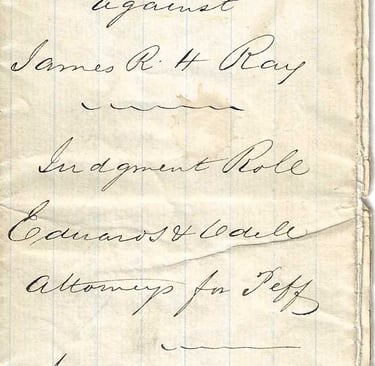 against
James R. H Ray
Judgment Role
Edwards & Odell
Attorneys for Peff